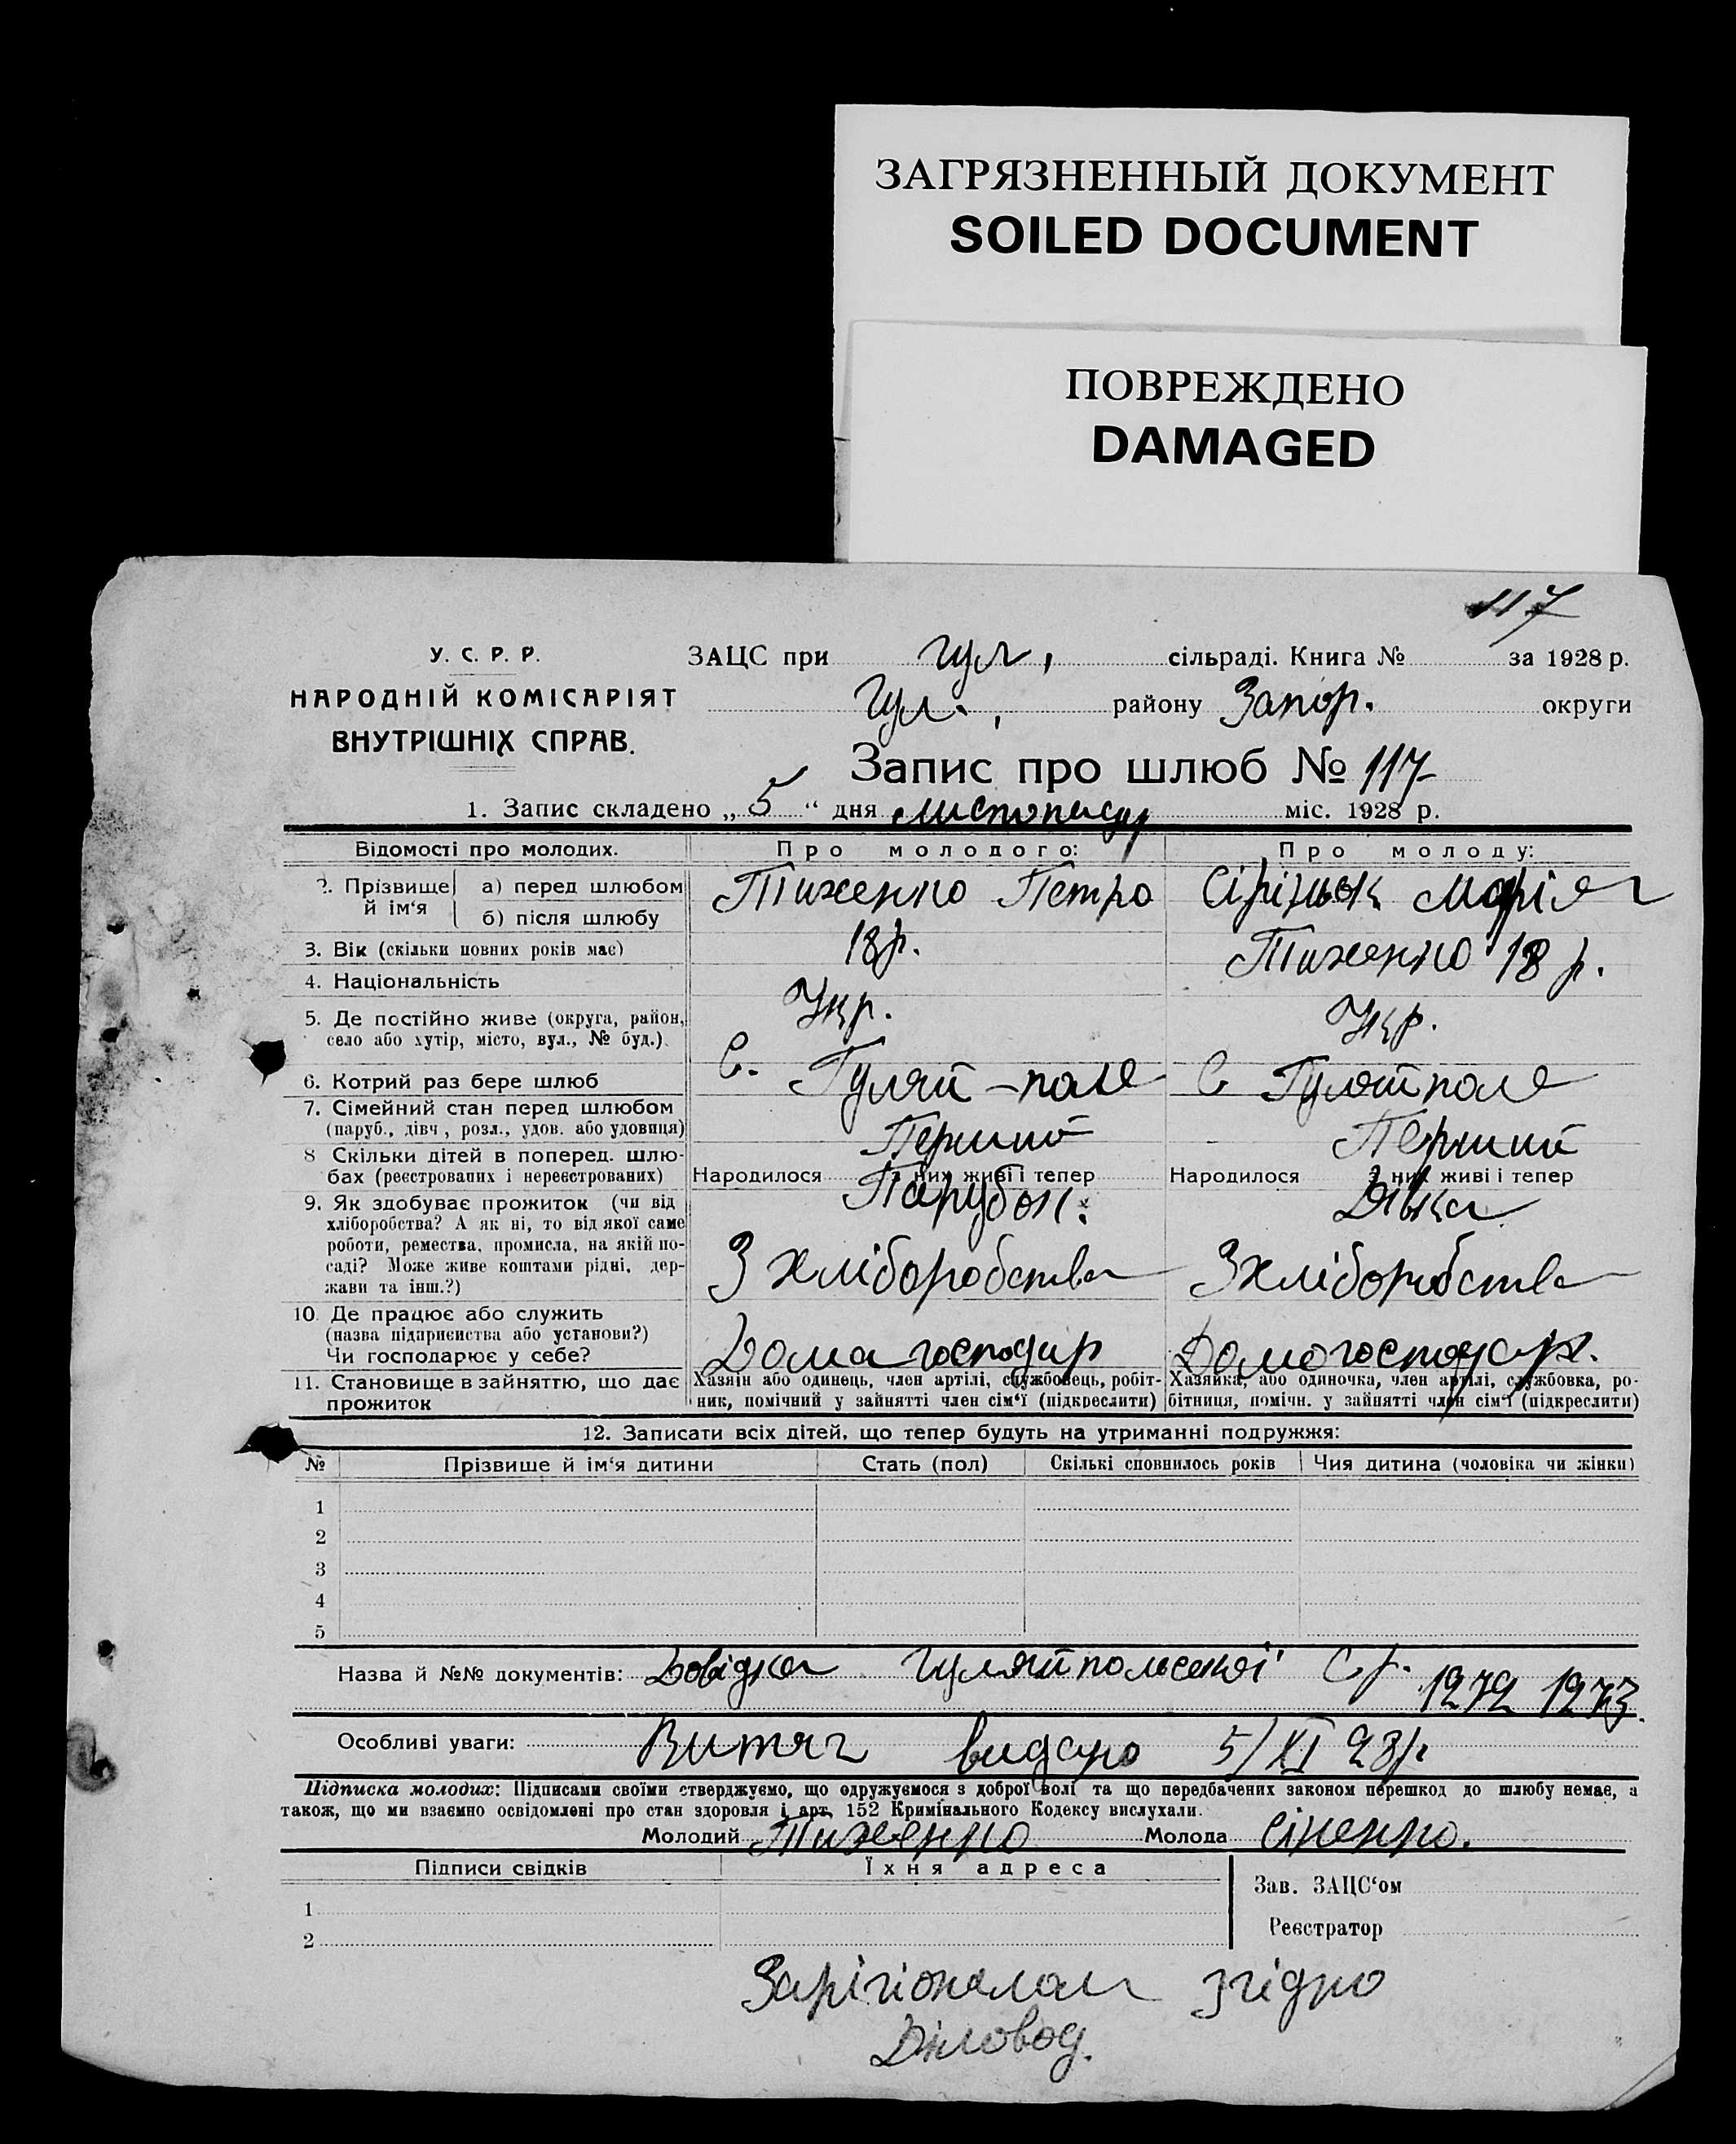 ЗАГРЯЗНЕННЫЙ ДОКУМЕНТ
SOILED DOCUMENT
ПОВРЕЖДЕНО
DAMAGED
117
У. С. Р. Р.
НАРОДНІЙ КОМІСАРІЯТ
ВНУТРІШНІХ СПРАВ.
ЗАЦС при гул, сільраді. Книга № за 1928 р.
Гул., району Запор. округи
Запис про шлюб № 117
1. Запис складено „ 5 “ дня листопаду міс. 1928 р.
Відомості про молодих. Про молодого: Про молоду:
2. Прізвище й ім‘я а) перед шлюбом Тиженко Петро Марія
б) після шлюбу
3. Вік (скільки повних років має) 18 р. Тиженко 18 р.
4. Національність Укр. Укр.
5. Де постійно живе (округа, район,
село або хутір, місто, вул., № буд.).
С. Гуляй-поле С Гуляйполе
6. Котрий раз бере шлюб
7. Сімейний стан перед шлюбом
(паруб., дівч., розл., удов. або удовиця)
Перший Перший
8 Скільки дітей в поперед. шлю-
бах (реєстрованих і нереєстрованих)
Народилося З них живі і тепер Народилося З них живі і тепер
Парубок. Дівка
9. Як здобуває прожиток (чи від
хліборобства? А як ні, то від якої саме
роботи, ремества, промисла, на якій по-
саді? Може живе коштами рідні, дер-
жави та інш.?)
З хліборобства З хліборобства
10. Де працює або служить
(назва підприємства або установи?)
Чи господарює у себе?
Дома господар Дома господар.
11. Становище в зайняттю, що дає
прожиток
Хазяїн або одинець, член артілі, службовець, робіт-
ник, помічний у зайнятті член сім‘ї (підкреслити)
Хазяйка, або одиночка, член артілі, службовка, ро-
бітниця, помічн. у зайнятті член сім‘ї (підкреслити)
12. Записати всіх дітей, що тепер будуть на утриманні подружжя:
№ Прізвище й ім‘я дитини Стать (пол) Скількі сповнилось років Чия дитина (чоловіка чи жінки)
1
2
3
4
5
Назва й №№ документів: Довідка Гуляйпольської Ср. 1272 1273.
Особливі уваги: Витяг видано 5/XI 28р
Підписка молодих: Підписами своїми стверджуємо, що одружуємося з доброї волі та що передбачених законом перешкод до шлюбу немає, а
також, що ми взаємно освідомлені про стан здоровля і арт. 152 Кримінального Кодексу вислухали.
Молодий Тиженко Молода
Підписи свідків Їхня адреса
Зав. ЗАЦС‘ом
1
Реєстратор
2
згідно
Діловод.